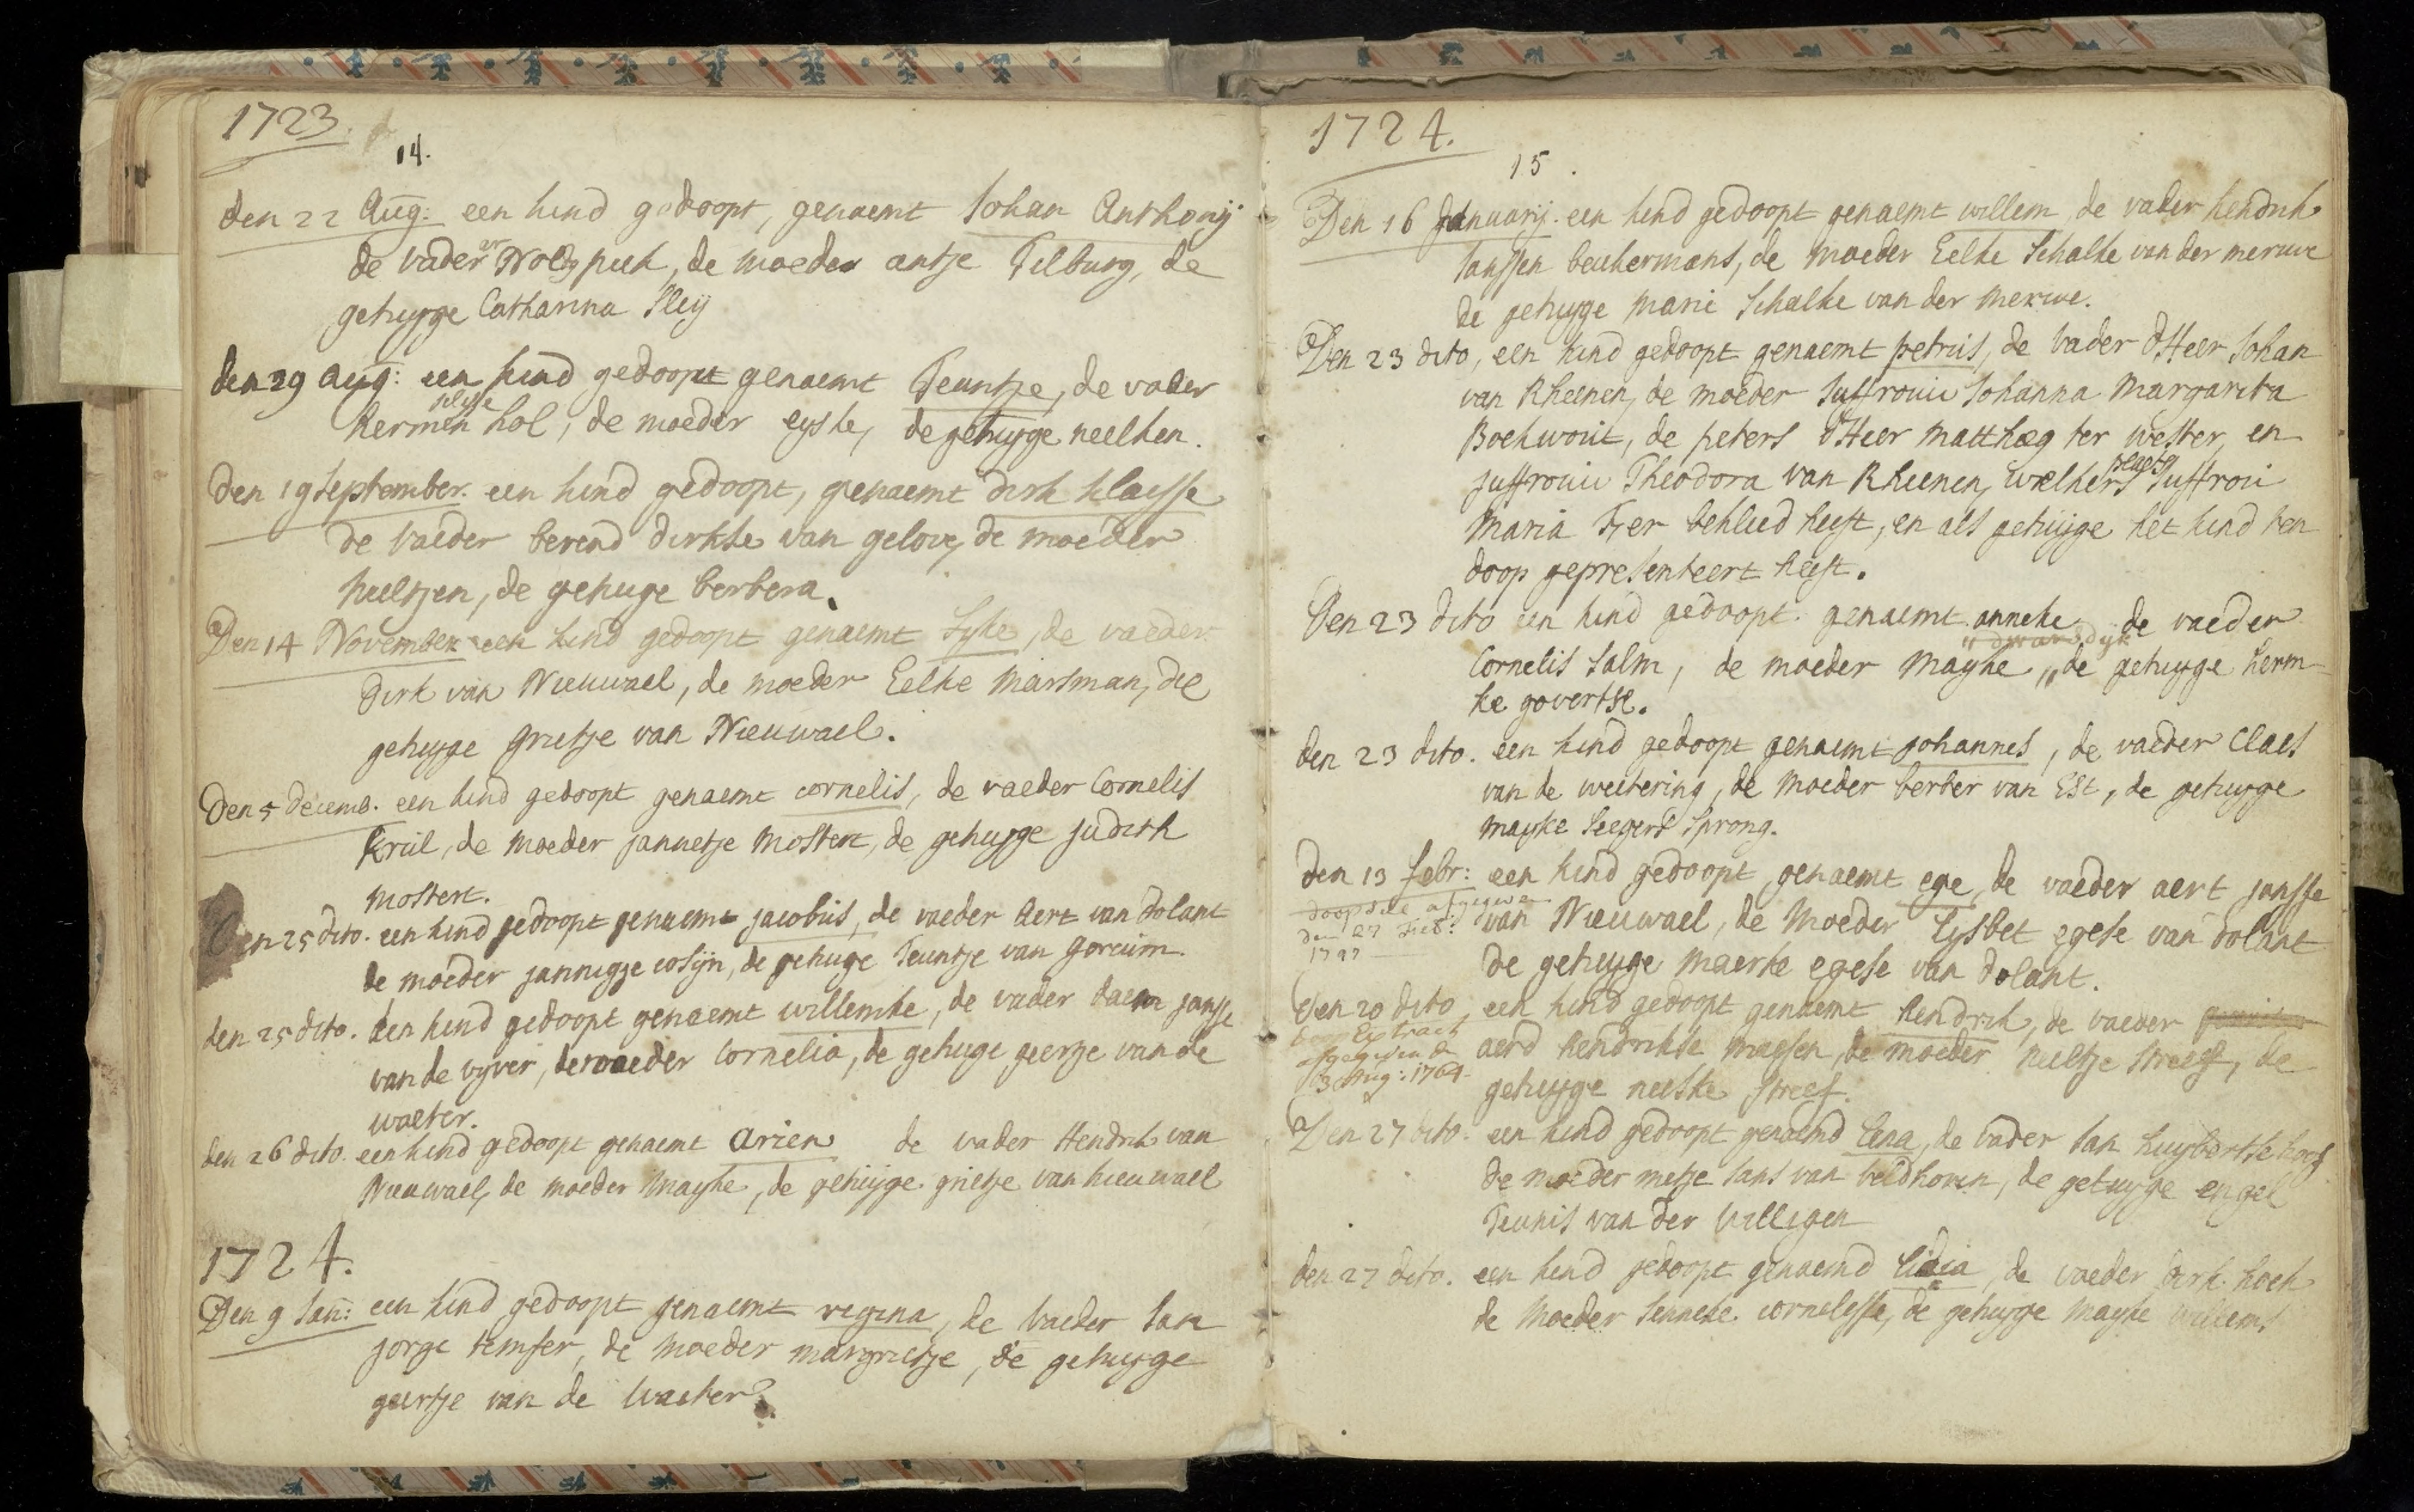 1723.
14.
den 22 Aug: een kind gedoopt, genaemt Johan Anthonij
de vader peek, de moeder antje Tilburg, de
getuyge Catharina Sleij
den 29 aug: een kind gedoopt genaemt Teuntje, de vader
hermen hol, de moeder eyske, de getuyge neelken.
Den 19 September. een kind gedoopt, genaemt dirk klaesse
de vaeder berend dirkse van gelove, de moeder
neeltjen, de getuige berbera.
Den 14 November een kind gedoopt genaemt Syke, de vaeder
dirk van Nieuwael, de moeder Eelke Marsman, de
getuyge grietje van Nieuwael.
Den 5 decemb. een kind gedoopt genaemt cornelis, de vaeder Cornelis
Krul, de moeder jannetje Mostert, de getuyge judith
mostert.
Den 25 dito. een kind gedoopt genaemt jacobus, de vaeder Aert van dolant
de moeder jannigje cosijn, de getuige Teuntje van Gorcum.
den 25 dito. een kind gedoopt genaemt willemke, de vader daem janse
van de vyver, de moeder Cornelia, de getuige geertje van de
waeter.
den 26 dito. een kind gedoopt genaemt Arien de vader Hendrik van
Nieuwael, de moeder Mayke, de getuijge grietje van nieuwael
1724.
Den 9 Jan: een kind gedoopt genaemt regina, de vaeder Jan
jorge temfer, de moeder margrietje, de getuyge
geertje van de waeter.
1724.
15.
Den 16 Januarij. een kind gedoopt genaemt willem, de vader hendrik
Janssen beukermans, de moeder Eelke Schalke van der merwe
de getuyge Marie Schalke van der Merwe.
Den 23 dito, een kind gedoopt genaemt petrus, de vader d'Heer Johan
van Rheenen, de moeder Juffrouw Johanna Margarita
Boekwout, de peters d'Heer Matthæg ter wetter, en
juffrouw Theodora van Rheenen, welkers plaets Juffrou
Maria Frer bekleed heeft, en als getuijge het kind ten
doop gepresenteert heeft.
Den 23 dito een kind gedoopt genaemt anneke de vaeder
Cornelis Salm, de moeder Mayke, " dwarsdijk de getuyge herm-
ke govertse.
den 23 dito. een kind gedoopt genaemt johannes, de vaeder Claes
van de weetering, de Moeder berber van Est, de getuyge
mayke Seegers Sprong.
Den 13 febr: een kind gedoopt genaemt ege, de vaeder aert jansse
van Nieuwael, de Moeder Lysbet egese van dolant
de getuyge Maerke egese van dolant.
Den 20 dito een kind gedoopt genaemt hendrik, de vaeder
Extract
aerd hendrikse maesen, de moeder neeltje streef, de
3 Aug: 1764
getuyge neeske streef.
Den 27 dito. een kind gedoopt genaemd Lena, de vader Jan huybertse hoeg
de moeder metje Jans van veldhoven, de getuyge engel
Teunis van der Willigen
den 27 dito. een kind gedoopt genaemd Lidia, de vaeder dirk hoek
de Moeder Jenneke cornelisse, de getuyge Mayke willems